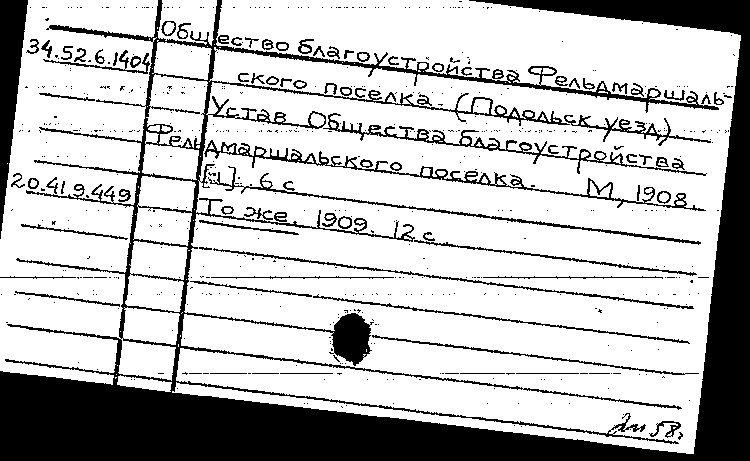 Общество благоустройства Фельдмаршаль-
34.52.6.1404
ского поселка. (Подольск. уезд).
Устав Общества благоустройства
Фельдмаршальского поселка. М., 1908.
20.41.9.449
[1], 6 с
То же. 1909. 12 с.
58.